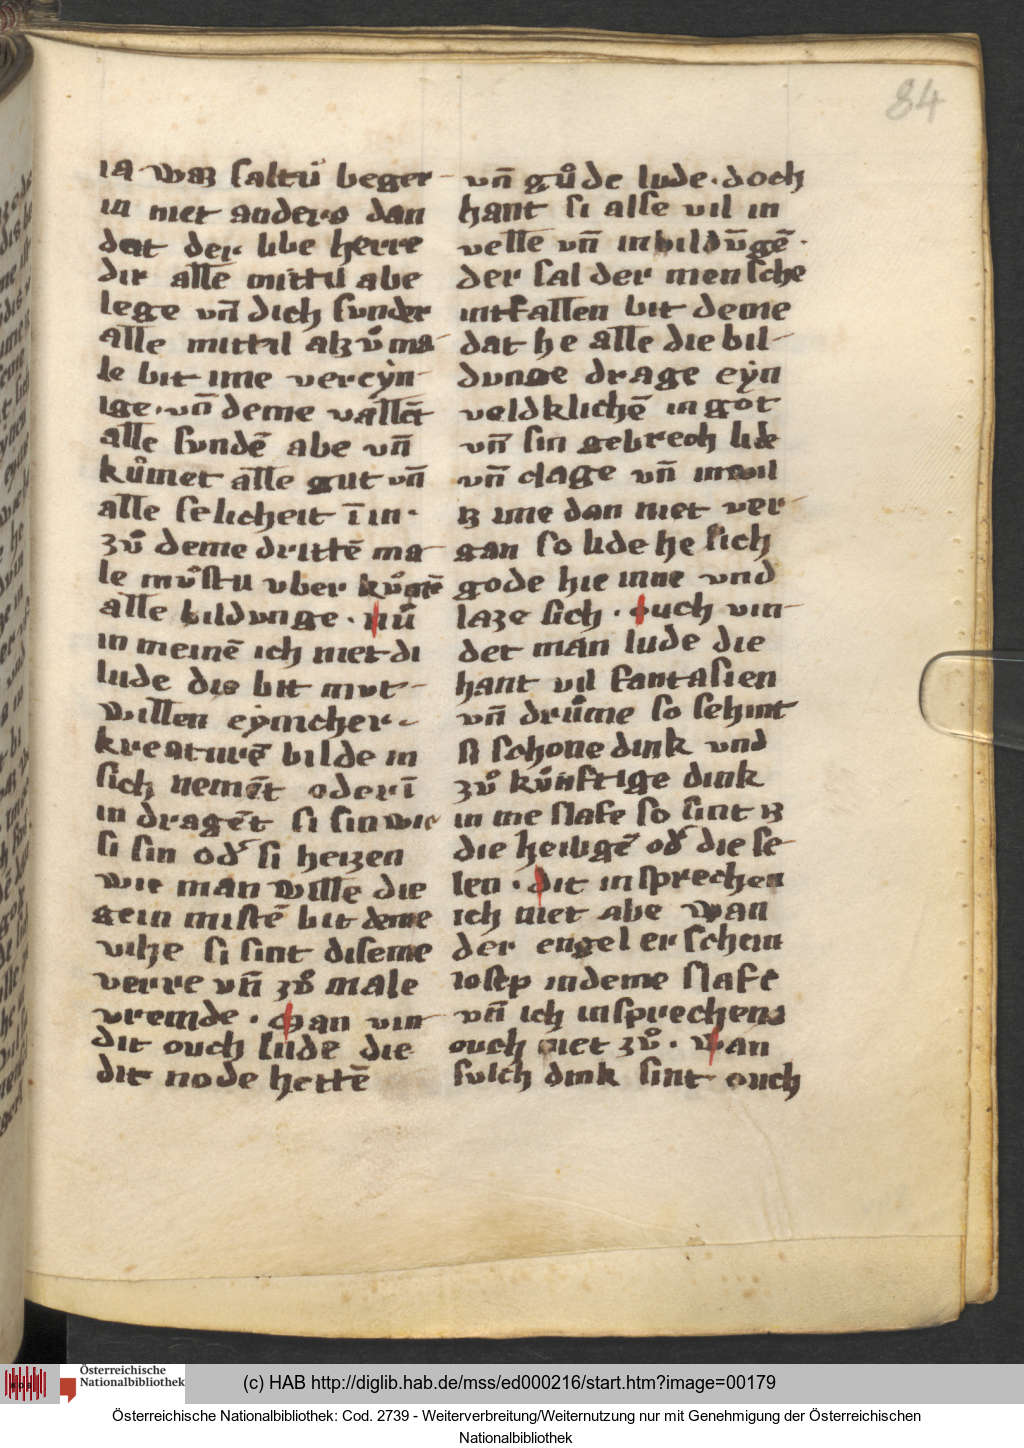 84
ia waz saltu beger
in niet anders dan
dat der libe herre
dir alle mittil abe
lege vn̄ dich sunder
alle mittil alzů ma
le bit ime vereẏn
ige · vn̄ deme vallēt
alle sundē abe vn̄
kůmet alle gut vn̄
alle selicheit ī in ·
zů deme drittē ma
le můstu vber kůmē
alle bildunge · nů
in meinē ich niet di
lude die bit mut
willen eẏnicher
kreaturē bilde in
sich nemēt oder ī
in dragēt si sin wie
si sin od' si heizen
wie man wille die
gein mistē bit deme
vihe si sint diseme
verre vn̄ zů male
vremde · Man vin
dit ouch lude die
dit node hettē
vn̄ gůde lude · doch
hant si alse vil in
velle vn̄ inbildūgē ·
der sal der mensche
intfallen bit deme
dat he alle die bil
dunge drage eẏn
veldklichē in got
vn̄ sin gebrech lide
vn̄ clage vn̄ in wil
iz ime dan niet ver
gan so lide he sich
gode hie inne vnd
laze sich · ouch vin
det man lude die
hant vil fantasien
vn̄ drůme so sehint
si schone dink vnd
zů kůnftige dink
in me slafe so sint iz
die heiligē od' die se
len · dit insprechen
ich niet abe wan
der engel erschein
iosep indeme slafe
vn̄ ich insprechens
ouch niet zů · wan
sulch dink sint ouch
Österreichische
Nationalbibliothek
(c) HAB http://diglib.hab.de/mss/ed000216/start.htm?image=00179
Österreichische Nationalbibliothek: Cod. 2739 - Weiterverbreitung/Weiternutzung nur mit Genehmigung der Österreichischen
Nationalbibliothek